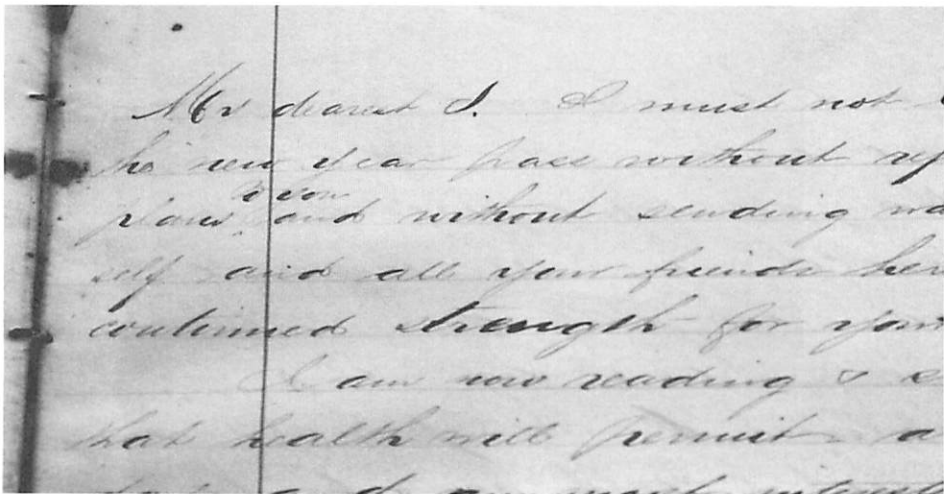 My dearest S. I must not
the new year pass without
plans and without sending
self and all your friends
continued strength for your
I am now reading &
that health will permit a